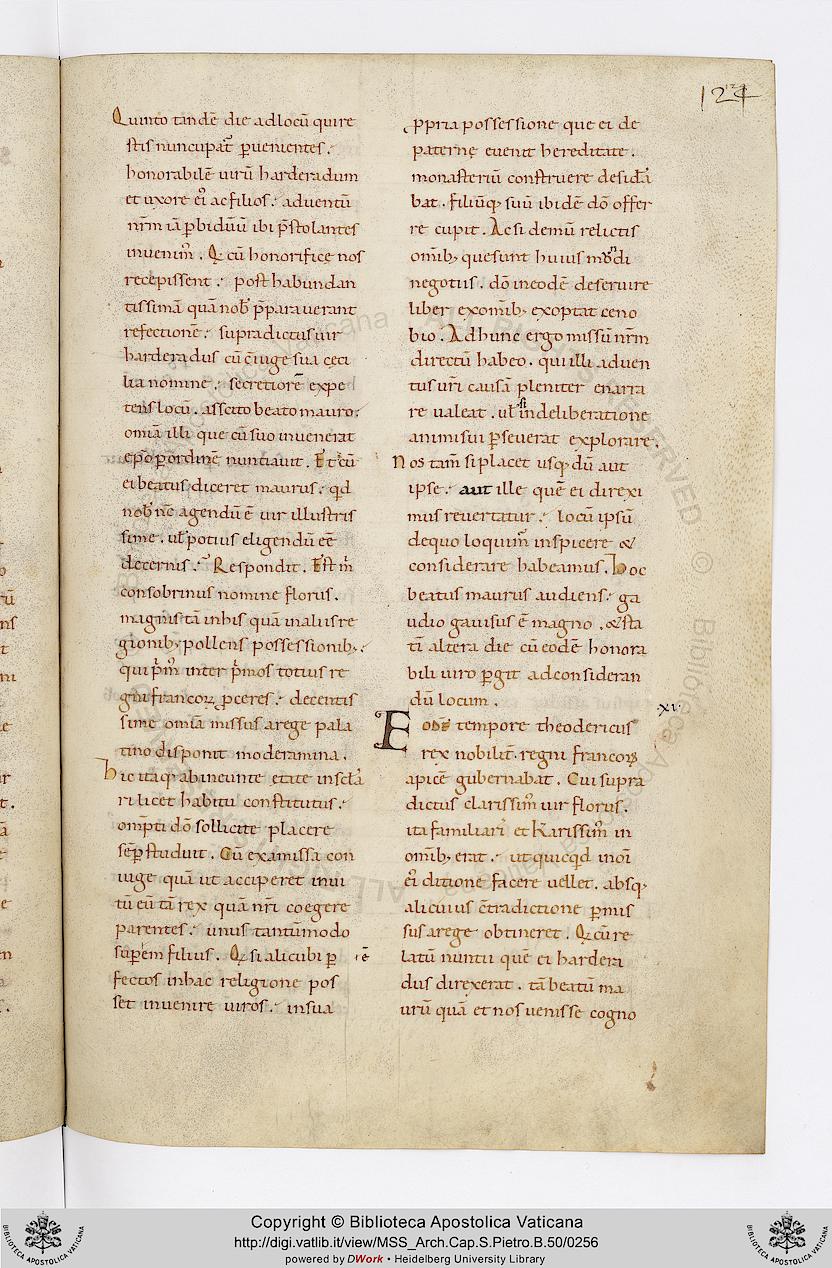 124
Quinto tandē die ad locū qui re
stis nuncupat̄ p̄uenientes.
honorabilē uirū harderadum
et uxorē ei᾽ ac filios. aduentū
nr̄m iā p̄ biduū ibi p̄stolantes
inuenim᾽. Q cū honorifice nos
recepissent. post habundan
tissimā quā nob᾽ p̄parauerant
refectionē. supradictus uir
harderadus cū c̄iuge sua ceci
lia nomine. secretiorē expe
tens locū. ascito beato mauro.
om̄ia illi que cū suo inuenerat
ep̄o p̄ ordinē nunciauit. Et cū
ei beatus diceret maurus. qd̄
nob᾽ nē agendū ē uir illustris
sime. ul᾽ potius eligendū eē
decernis. Respondit. Est m̄
consobrinus nomine florus.
magnis tā in his quā in aliis re
gionib; pollens possessionib;.
qui p̄m᾽ inter p̄mos totius re
gni francoꝝ p̄ceres. decentis
sime om̄ia missus a rege pala
tino disponit moderamina.
Hic itaq; ab ineunte etate in sc̄la
ri licet habitu constitutus.
omp̄ti dō sollicite placere
sēp̄ studuit. Cū ex amissa con
iuge quā ut acciperet inui
tū eū tā rex quā nr̄i coegere
parentes. unus tantūmodo
sup̄ē ei filius. Q si alicubi p̄
fectos in hac religione pos
set inuenire uiros. in sua
ꝓpria possessione que ei de
paterne euenit hereditate.
monasteriū construere desidā
bat. filiūq; suū ibidē dō offer
re cupit. Ac si demū relictis
om̄ib; que sunt huius modi
negotiis. dō in eodē deseruire
liber ex om̄ib; exoptat ceno
bio. Ad hunc ergo missū nr̄m
directū habeo. qui illi aduen
tus ur̄i causā pleniter enarra
re ualeat. ul᾽ si in deliberatione
animi sui p̄seuerat explorare.
Nos tam̄ si placet usq; dū aut
ipse. aut ille quē ei direxi
mus reuertatur. locū ipsū
de quo loquim᾽ inspicere &
considerare habeamus. Hoc
beatus maurus audiens. ga
udio gauisus ē magno. & sta
tī altera die cū eodē honora
bili uiro p̄git ad consideran
dū locum.
.xi.
Eodē tempore theodericus
rex nobilit᾽ regni francoꝝ
apicē gubernabat. Cui supra
dictus clarissim᾽ uir florus.
ita familiari᾽ et Karissim᾽ in
om̄ib; erat. ut quicq̄d in
ei᾽ ditione facere uellet. absq;
alicuius c̄tradictione p̄mis
sus a rege obtineret. Q cū re
latū nuntii quē ei hardera
dus direxerat. tā beatū ma
urū quā et nos uenisse cogno
Copyright © Biblioteca Apostolica Vaticana
http://digi.vatlib.it/view/MSS_Arch.Cap.S.Pietro.B.50/0256
powered by DWork • Heidelberg University Library